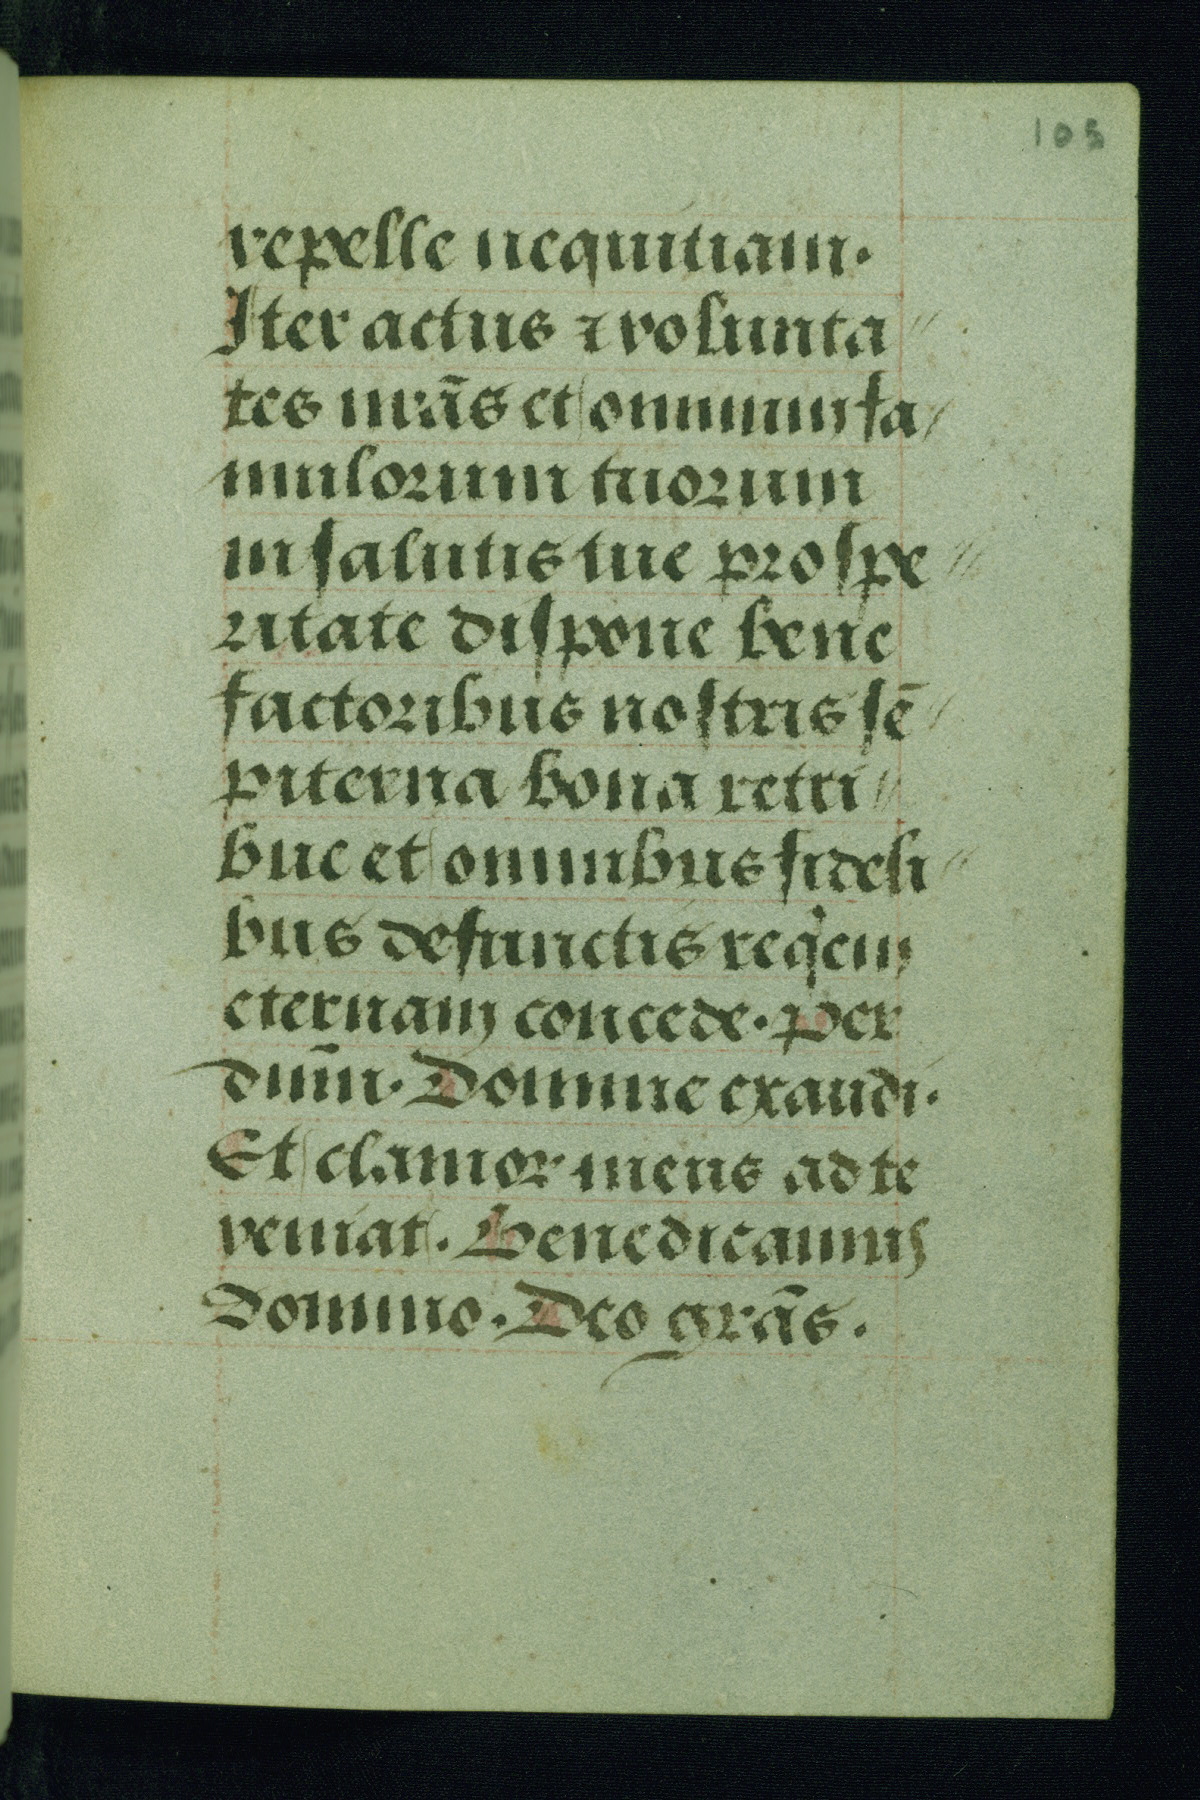 105
repelle nequitiam.
Iter actus ⁊ volunta//
tes nrãs et omnium fa/
mulorum tuorum
in salutis tue prospe//
ritate dispone bene
factoribus nostris sē//
piterna bona retri//
bue et omnibus fideli//
bus defunctis reqͥem
eternam concede. Per
dnm̄. Domine exaudi.
Et clamor meus ad te
veniat. Benedicamus
Domino. Deo grãs.